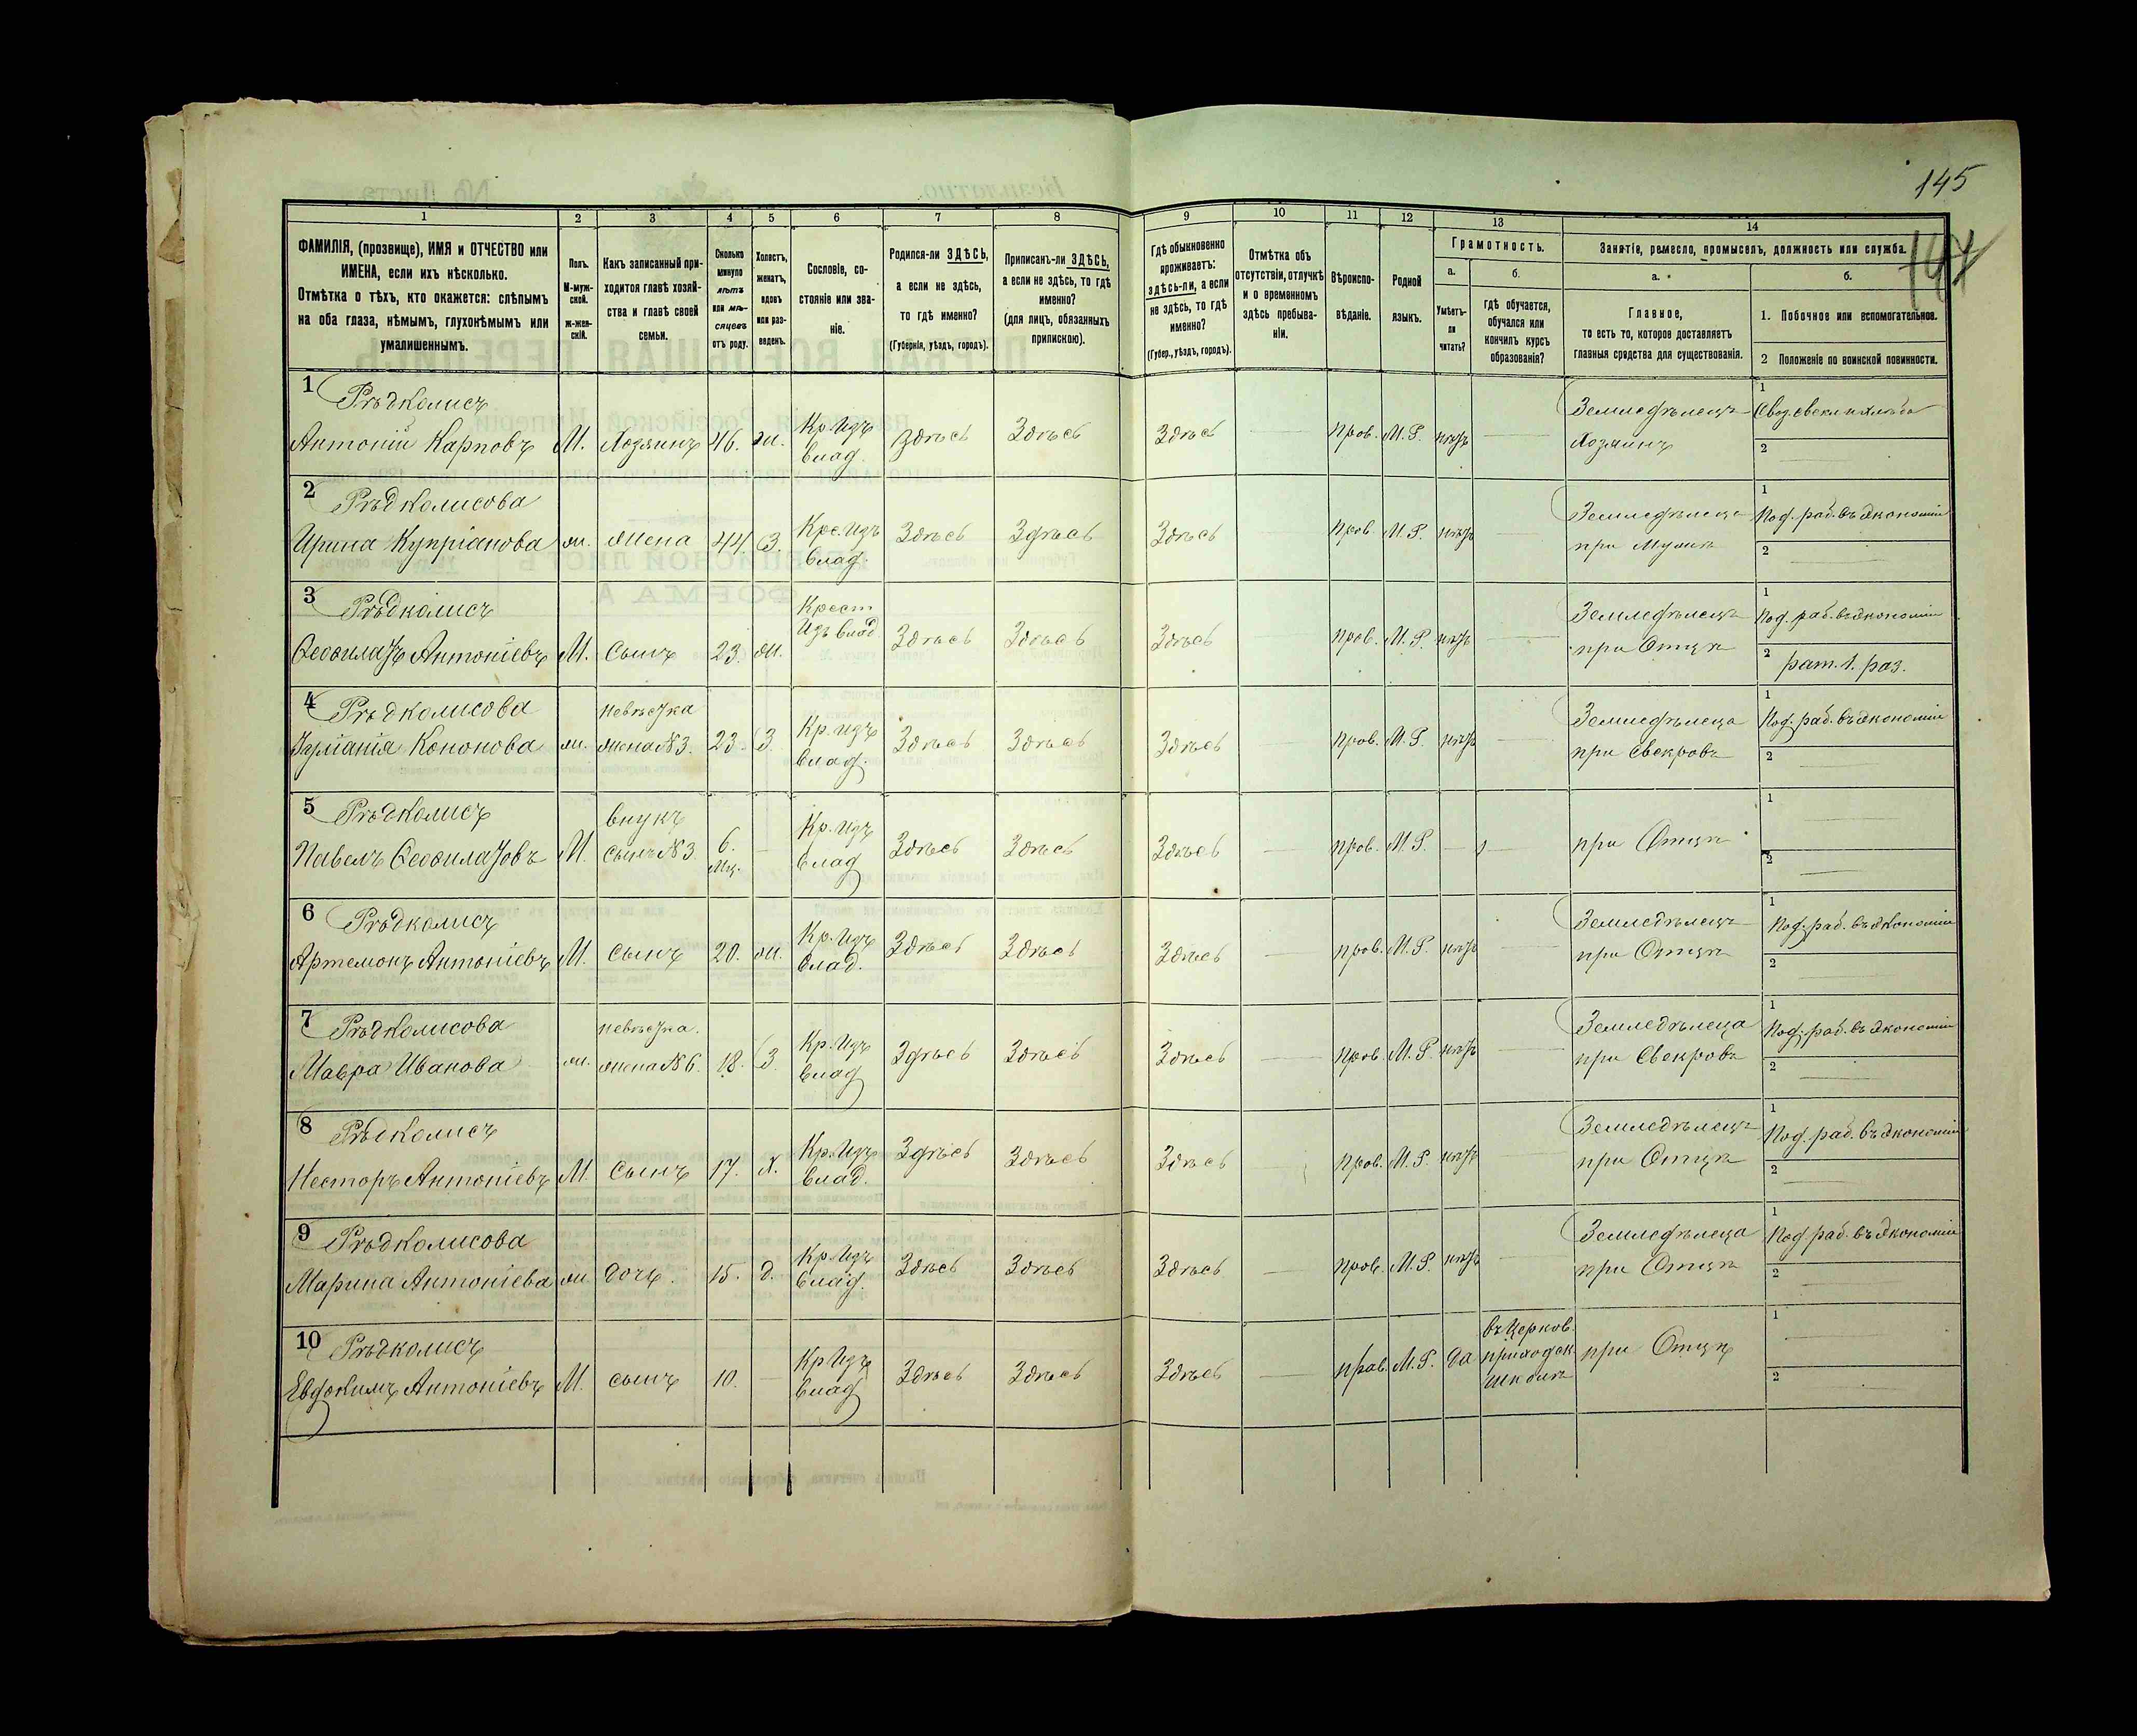 145
147
1 2 3 4 5 6 7 8 9 10 11 12 13 14
ФАМИЛІЯ, (прозвище), ИМЯ и ОТЧЕСТВО или
ИМЕНА, если ихъ нѣсколько.
Отмѣтка о тѣхъ, кто окажется: слѣпымъ
на оба глаза, нѣмымъ, глухонѣмымъ или
умалишеннымъ.
Полъ.
М-муж-
ской.
ж-жен-
скій.
Какъ записанный при-
ходится главѣ хозяй-
ства и главѣ своей
семьи.
Сколько
минуло
лѣтъ
или мѣ-
сяцевъ
отъ роду.
Холостъ,
женатъ,
вдовъ
или раз-
веденъ.
Сословіе, со-
стояніе или зва-
ніе.
Родился-ли ЗДѢСЬ,
а если не здѣсь,
то гдѣ именно?
(Губернія, уѣздъ, городъ).
Приписанъ-ли ЗДѢСЬ,
а если не здѣсь, то гдѣ
именно?
(для лицъ, обязанныхъ
припискою).
Гдѣ обыкновенно
проживаетъ:
здѣсь-ли, а если
не здѣсь, то гдѣ
именно?
(Губер., уѣздъ, городъ).
Отмѣтка объ
отсутствіи, отлучкѣ
и о временномъ
здѣсь пребыва-
ніи.
Вѣроиспо-
вѣданіе.
Родной
языкъ.
Грамотность.
а.
Умѣетъ-
ли
читать?
б.
Гдѣ обучается,
обучался или
кончилъ курсъ
образованія?
Занятіе, ремесло, промыселъ, должность или служба.
а.
Главное,
то есть то, которое доставляетъ
главныя средства для существованія.
б.
1. Побочное или вспомогательное.
2 Положеніе по воинской повинности.
1 Рѣдколисъ
Антоній Карповъ М. Хозяинъ 46. ж. Кр. изъ влад. Здѣсь Здѣсь Здѣсь — пров. М.Р. нѣтъ — Земледѣлецъ Хозяинъ 1
2 —
2 Рѣдколисова
Ирина Купріанова ж. Жена 44 З. Кре. изъ влад. Здѣсь Здѣсь Здѣсь — пров. М.Р. нѣтъ — Земледѣлеца при Мужѣ 1 Под. раб. въ экономіи
2 —
3 Рѣдколисъ
Ѳеофилактъ Антоніевъ М. Сынъ 23. ж. Крест Изъ влад Здѣсь Здѣсь Здѣсь — пров. М.Р. нѣтъ — Земледѣлецъ при Отцѣ 1 Под. раб. въ экономіи
2 рат. 1. раз.
4 Рѣдколисова
Кононова ж. невѣстка жена №3. 23. З. Кр. изъ влад. Здѣсь Здѣсь Здѣсь — пров. М.Р. нѣтъ — Земледѣлеца при Свекровъ 1 Под. раб. въ экономіи
2 —
5 Рѣдколисъ
Павелъ Ѳеофилактовъ М. внукъ сынъ №3 6. Мц. — Кр. изъ влад Здѣсь Здѣсь Здѣсь — пров. М.Р. — — при Отцѣ 1 —
2 —
6 Рѣдколисъ
Артемонъ Антоніевъ М. сынъ 20. ж. Кр. изъ влад. Здѣсь Здѣсь Здѣсь — пров. М.Р. нѣтъ — Земледѣлецъ при Отцѣ 1 Под. раб. въ экономіи
2 —
7 Рѣдколисова
Мавра Иванова ж. невѣстка. жена №6. 18. З. Кр. изъ влад Здѣсь Здѣсь Здѣсь — пров. М.Р. нѣтъ — Земледѣлеца при Свекровъ 1 Под. раб. въ экономіи
2 —
8 Рѣдколисъ
Несторъ Антоніевъ М. Сынъ 17. х. Кр. изъ влад. Здѣсь Здѣсь Здѣсь пров. М.Р. нѣтъ Земледѣлецъ при Отцѣ 1 Под. раб. въ экономіи
2 —
9 Рѣдколисова
Марина Антоніева ж. дочь. 15. д. Кр. изъ влад. Здѣсь Здѣсь Здѣсь — пров. М.Р. нѣтъ — Земледѣлеца при Отцѣ 1 Под раб. въ экономіи
2 —
10 Рѣдколисъ
Евдокимъ Антоніевъ М. сынъ 10. — Кр изъ влад Здѣсь Здѣсь Здѣсь — прав. М.Р. да въ Церков. приходск. школѣ при Отцѣ 1 —
2 —